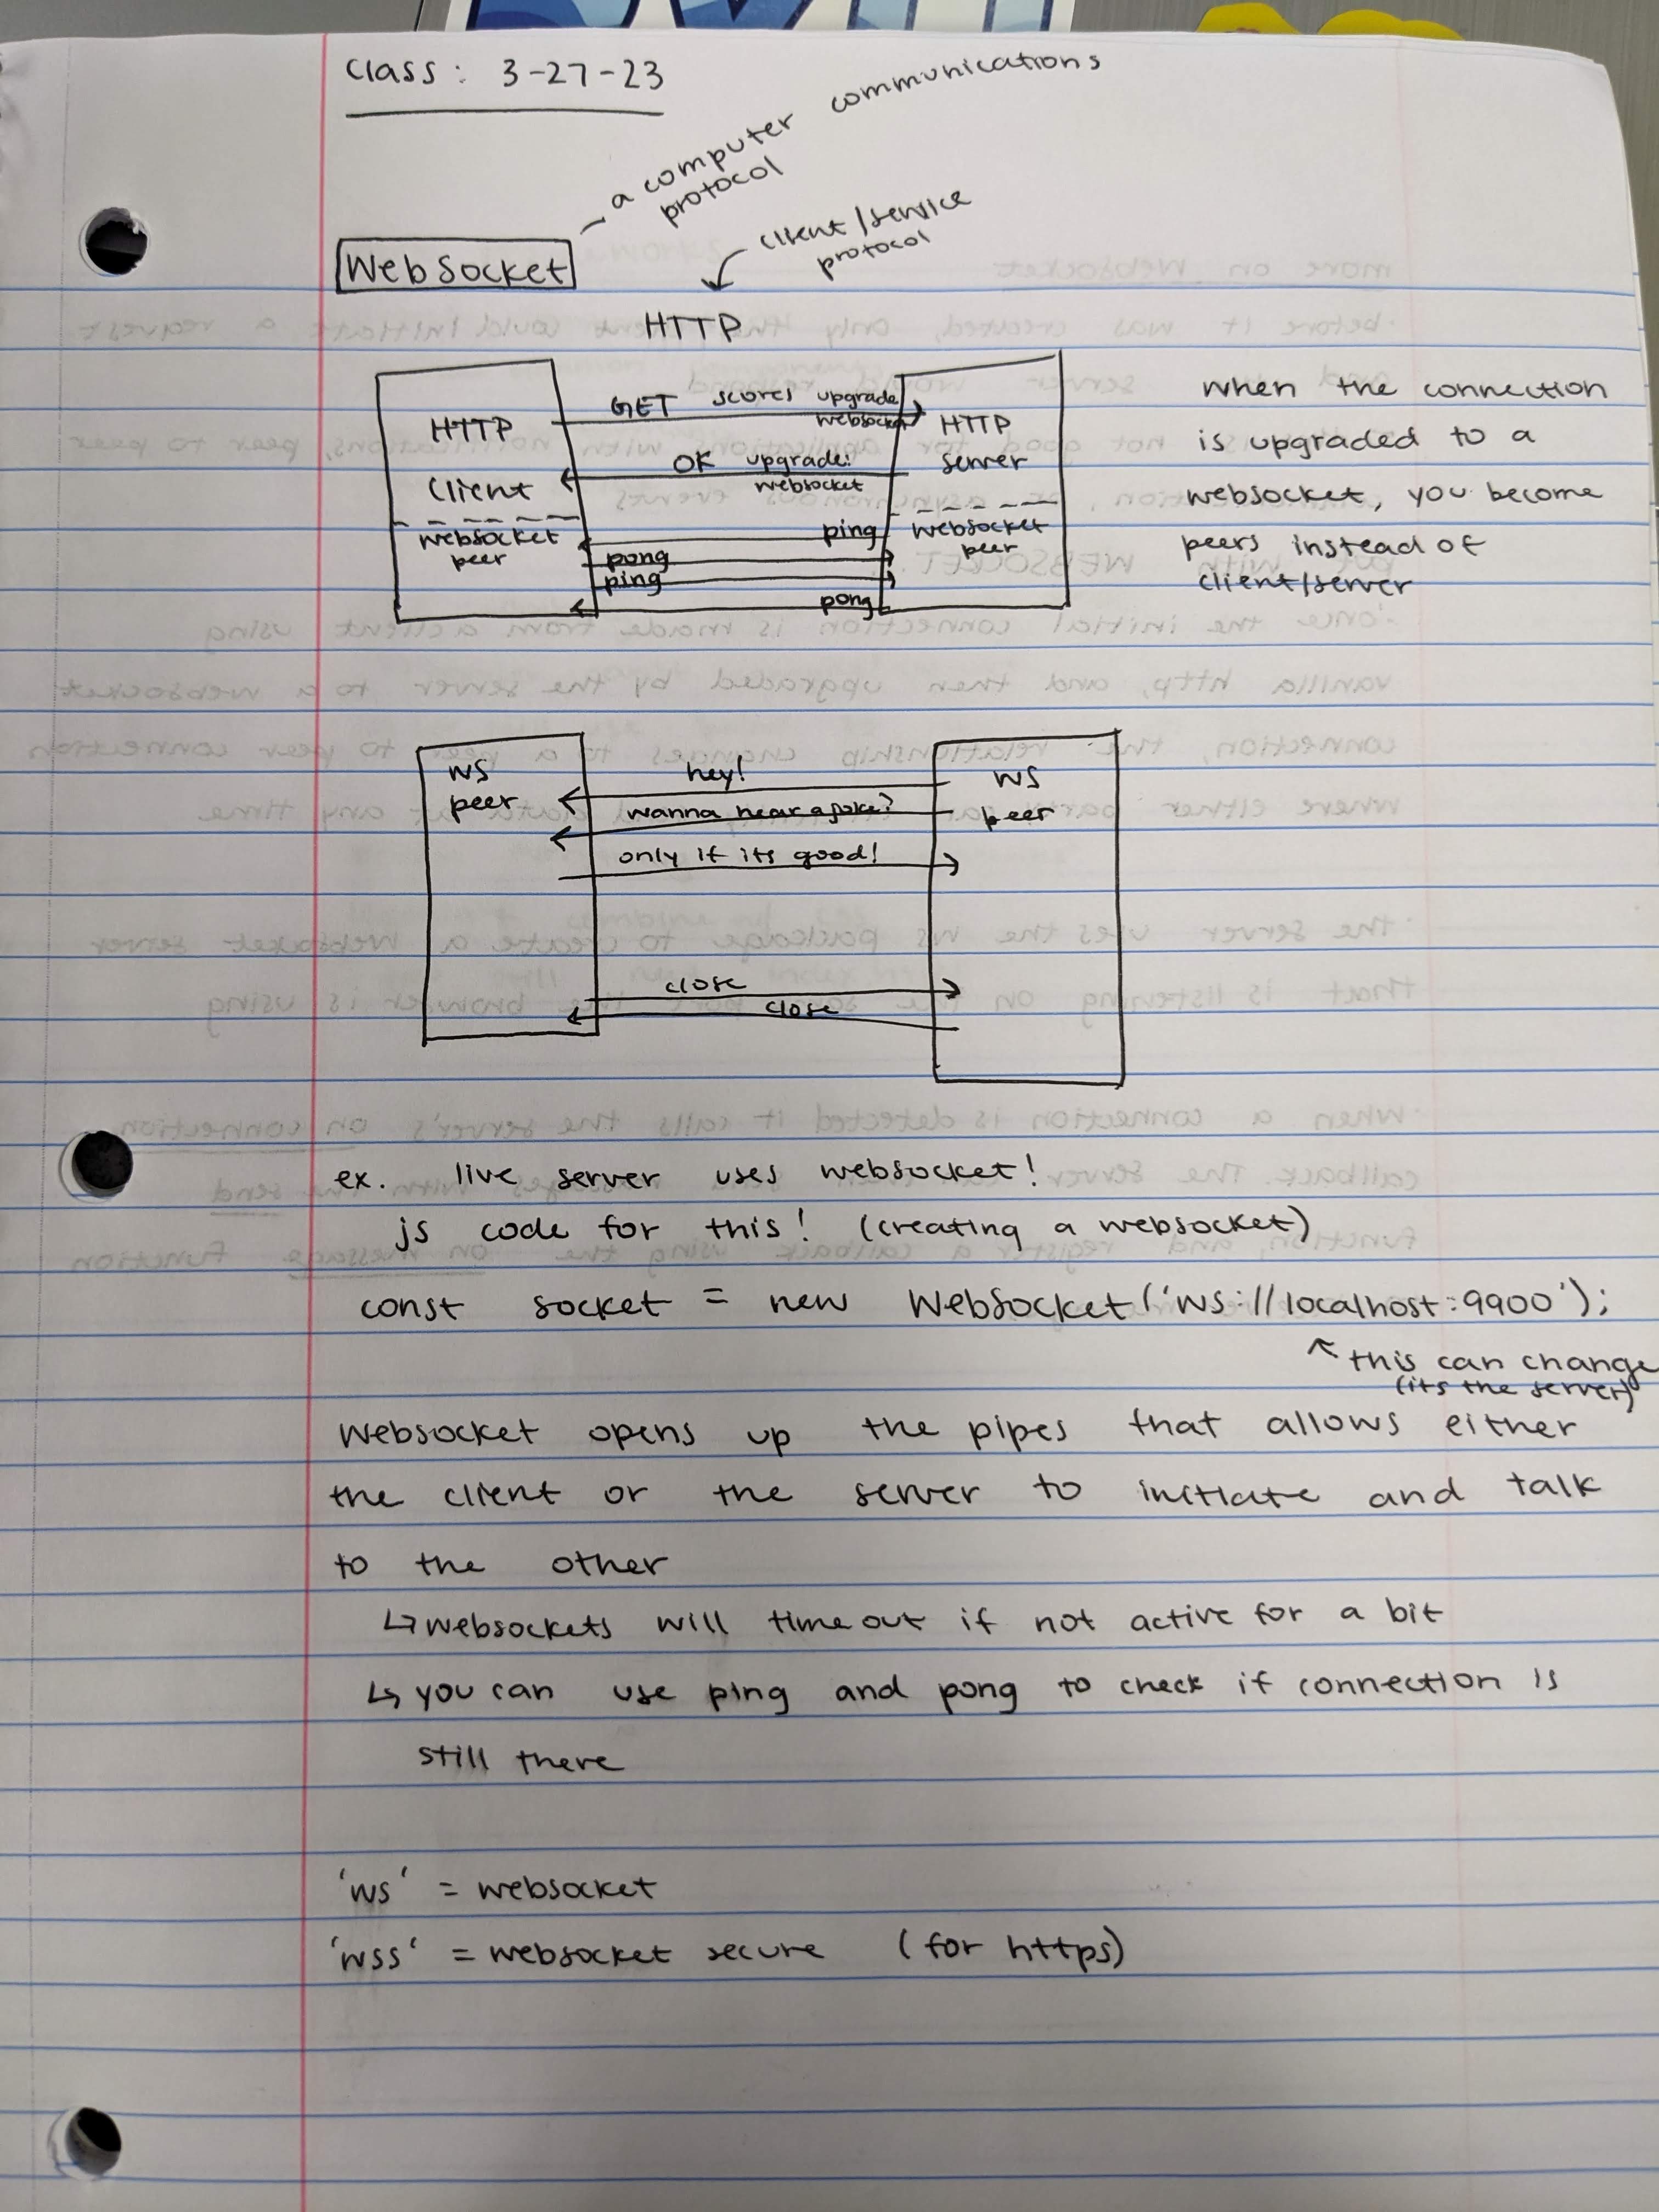 class: 3-27-23
a computer communications
protocol
WebSocket
client/service
protocol
HTTP
HTTP
client
websocket
peer
GET scores upgrade
websocket
OK upgrade:
websocket
ping
pong
ping
pong
HTTP
server
websocket
peer
when the connection
is upgraded to a
websocket, you become
peers instead of
client/server
WS
peer
hey!
wanna hear a joke?
only if its good!
close
close
WS
peer
ex. live server uses websocket!
js code for this! (creating a websocket)
const socket = new WebSocket('ws://localhost:9900');
this can change
(its the server)
Websocket opens up the pipes that allows either
the client or the server to initiate and talk
to the other
↳ websockets will timeout if not active for a bit
↳ you can use ping and pong to check if connection is
still there
'ws' = websocket
'wss' = websocket secure (for https)